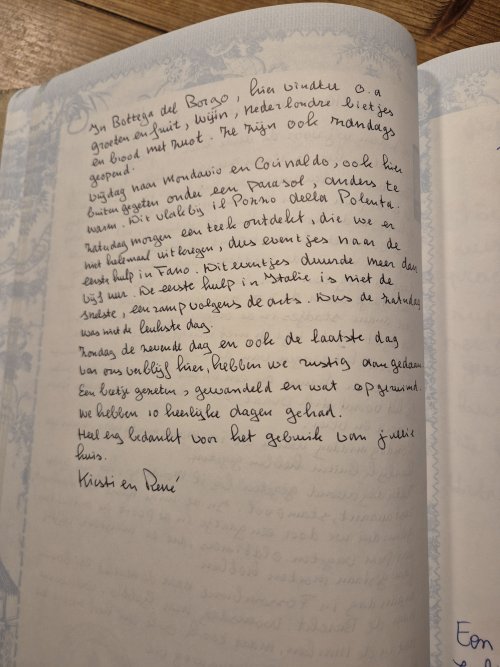 In Bottega del Borgo, hier vindt u o.a
groeten en fruit, wijn, Nederlandse bietjes
en brood met zuot. Ze zijn ook zondags
geopend.
Vrijdag naar Mondavio en Corinaldo, ook hier
buiten gegeten onder een parasol, anders te
warm. Dit vlakbij il Pozzo della Polenta.
Zaterdag morgen een teek ontdekt, die we er
niet helemaal uit kregen, dus eventjes naar de
eerste hulp in Fano. Dit eventjes duurde meer dan
vijf uur. De eerste hulp in Italie is niet de
snelste, een ramp volgens de arts. Dus de zaterdag
was niet de leukste dag.
Zondag de zevende dag en ook de laatste dag
van ons verblijf hier, hebben we rustig aan gedaan
Een beetje gezeten, gewandeld en wat opgeruimd.
We hebben 10 heerlijke dagen gehad.
Heel erg bedankt voor het gebruik van jullie
huis.
Kirsti en René
Een